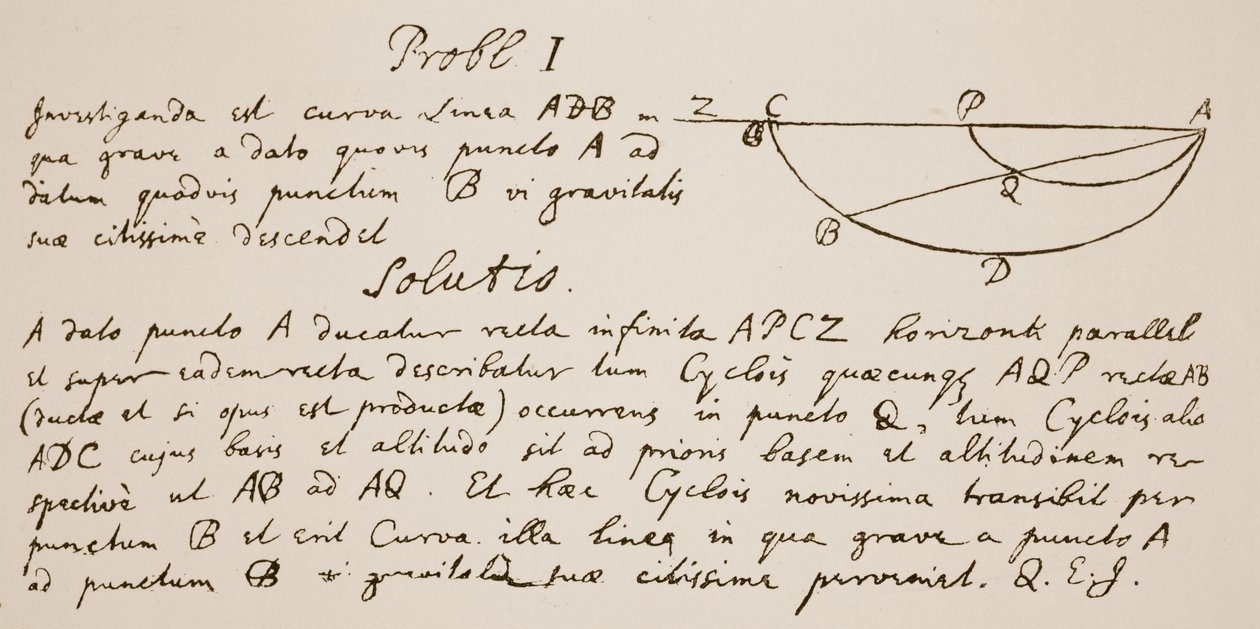 Probl I
Investiganda est curva Linea ADB in
qua grave a dato quovis puncto A ad
datum quodvis punctum B vi gravitatis
suæ citissimè descendet
Z C P A
B Q
B D
Solutio.
A dato puncto A ducatur recta infinita APCZ horizonti parallel
et super eadem recta describatur tum Cyclois quæcunqꝫ AQP rectæ AB
(ductæ et si opus est productæ) occurrens in puncto Q, tum Cyclois alia
ADC cujus basis et altitudo sit ad prioris basem et altitudinem re-
spectivè ut AB ad AQ. Et hæc Cyclois novissima transibit per
punctum B et erit Curva illa linea in qua grave a puncto A
ad punctum B vi gravitatis suæ citissime perveniet. Q.E.J.